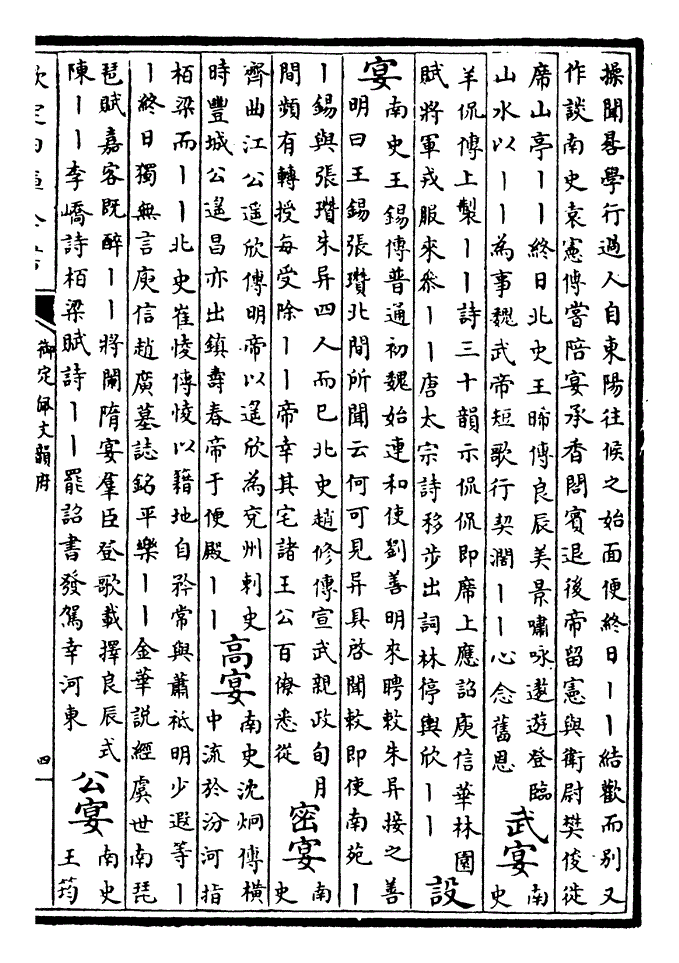 操聞畧學行過人自東陽往候之始面便終日丨丨結歡而別又
作談南史袁憲傳嘗陪宴承香閣賓退後帝留憲與衛尉樊俊徙
席山亭丨丨終日北史王晞傳良辰美景嘯咏遨遊登臨
山水以丨丨為事魏武帝短歌行契濶丨丨心念舊恩
武宴
南
史
羊侃傳上製丨丨詩三十韻示侃侃即席上應詔庾信華林園
賦將軍戎服來參丨丨唐太宗詩移步出詞林停輿欣丨丨
設
宴
南史王錫傳普通初魏始連和使劉善明來聘敕朱异接之善
明曰王錫張瓚北間所聞云何可見异具啓聞敕即使南苑丨
丨錫與張瓚朱异四人而已北史趙修傳宣武親政旬月
間頻有轉授每受除丨丨帝幸其宅諸王公百僚悉從
密宴
南
史
齊曲江公遥欣傳明帝以遥欣為兖州刺史
時豐城公遥昌亦出鎮壽春帝于便殿丨丨
高宴
南史沈炯傳横
中流於汾河指
栢梁而丨丨北史崔㥄傳㥄以籍地自矜常與蕭祗明少遐等丨
丨終日獨無言庾信趙廣墓誌銘平樂丨丨金華説經虞世南琵
琶賦嘉客既醉丨丨將闌隋宴羣臣登歌載擇良辰式
陳丨丨李嶠詩栢梁賦詩丨丨罷詔書發駕幸河東
公宴
南史
王筠
欽定四庫全書
御定佩文韻府
四